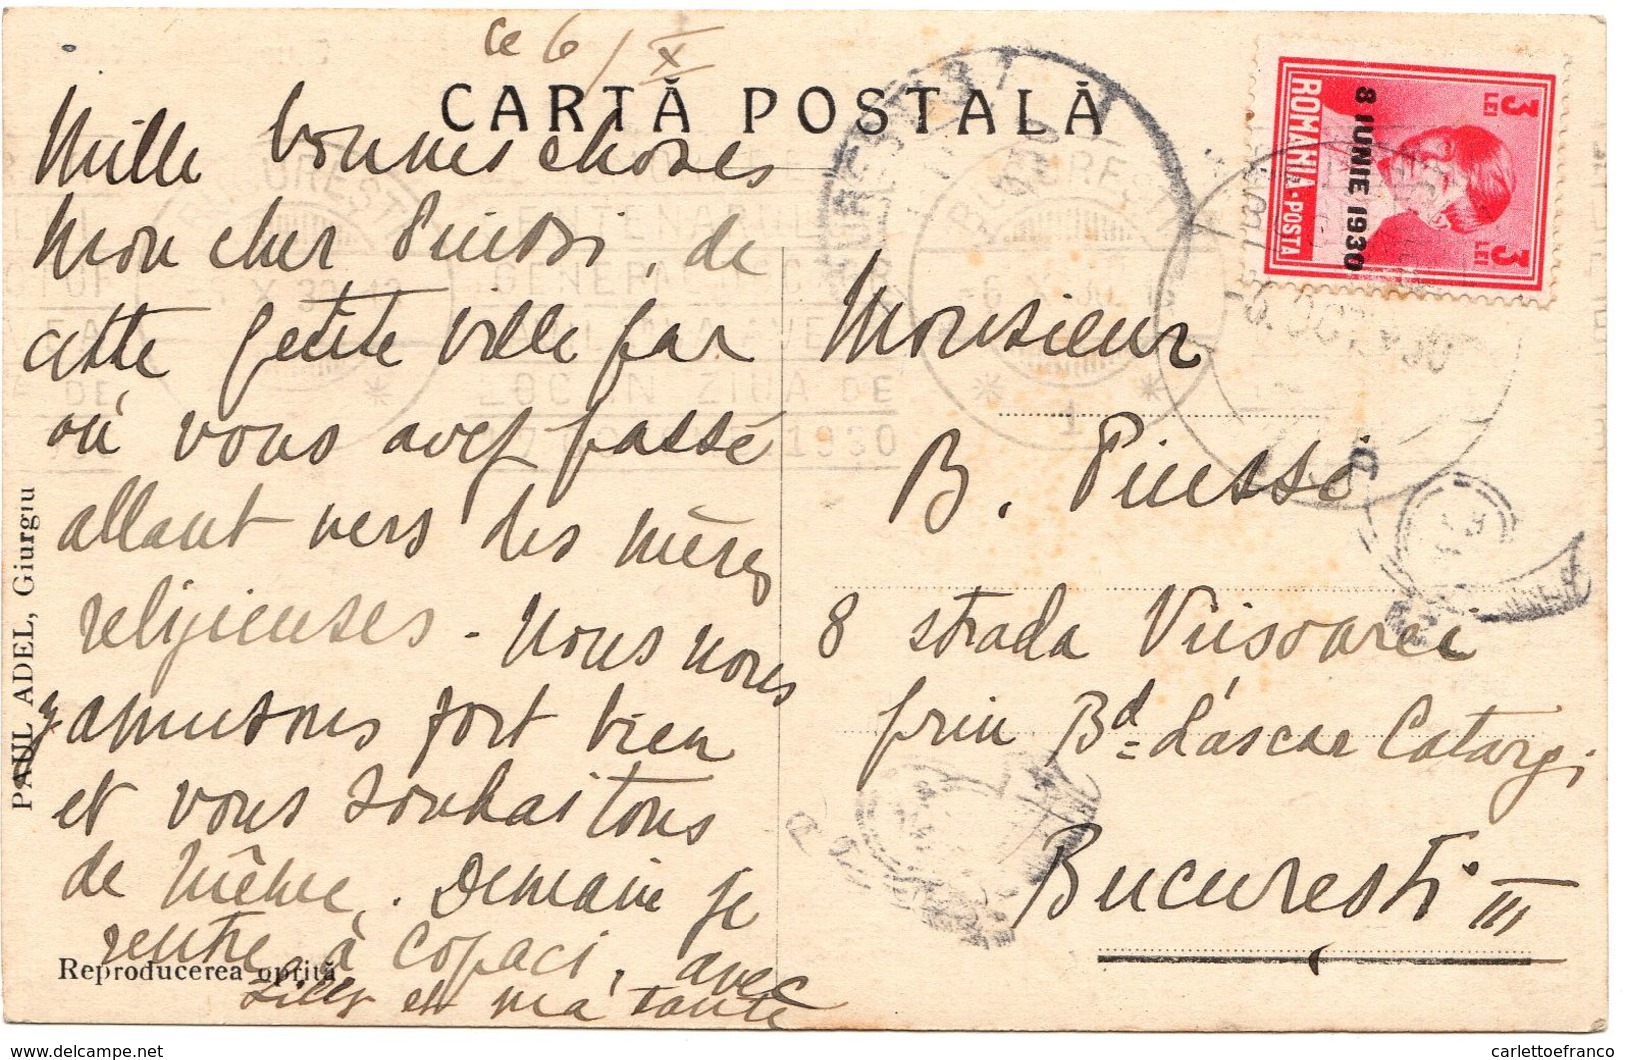 ce 6/X
CARTĂ POSTALĂ
Mille bonnes choses
mon cher Pinossi, de
cette petite ville par
où vous avez passé
allant vers des mères
religieuses. Nous nous
amusons fort bien
et vous souhaitons
de même. Demain je
rentre à Copaci, avec
et ma tante
PAUL ADEL, Giurgu
Reproducerea oprită
3 LEI
3 LEI
ROMANIA·POSTA
8 IUNIE 1930
Monsieur
B. Pinossi
8 strada Viisoarei
prin Bd Lascar Catargi
Bucuresti III
6. OCT. 1930
BUCURESTI
1
GENERAL
LOC IN ZIUA DE
1930
delcampe.net
carlettoefranco